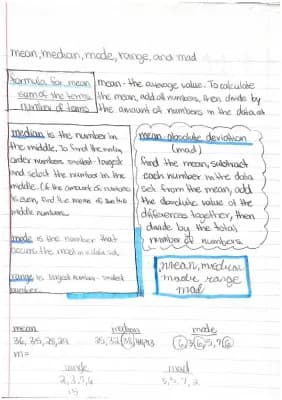 mean, median, mode, range, and mad
formula for mean
sum of the terms
number of terms
mean - the average value. To calculate
the mean, add all numbers, then divide by
the amount of numbers in the data set
median is the number in
the middle. To find the median,
order numbers smallest - largest
and select the number in the
middle. (if the amount of numbers
is even, find the mean of the two
middle numbers.
mode is the number that
occurs the most in a data set
range is largest number - smallest
number.
mean absolute deviation
(mad)
find the mean, subtract
each number in the data
set from the mean, add
the absolute value of the
differences together, then
divide by the total
number of numbers
mean, median
mode range
mad
mean
36, 35, 28, 29
m=
median
25, 32, 38, 44, 93
mode
6, 3, 6, 5, 7, 6
range
2, 3, 7, 6
mad
5, 5, 7, 2